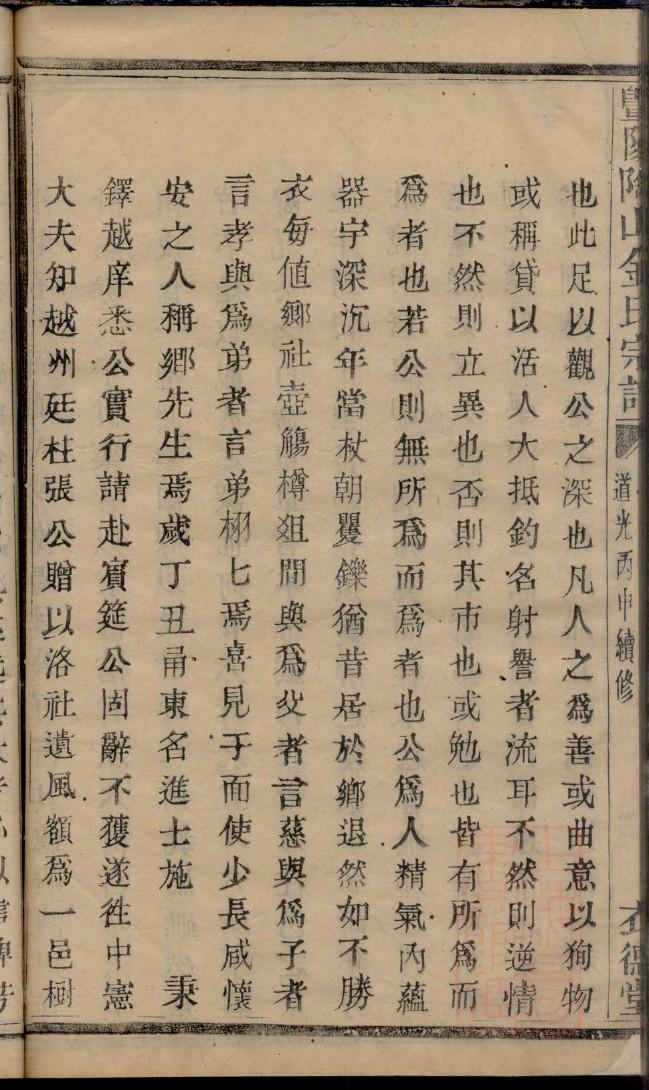 暨陽陶山金氏宗譜
道光丙申續修
衣德堂
也此足以觀公之深也凡人之爲善或曲意以狥物
或稱貸以活人大抵釣名射譽者流耳不然則逆情
也不然則立異也否則其市也或勉也皆有所爲而
爲者也若公則無所爲而爲者也公爲人精氣內蘊
器宇深沉年當杖朝矍鑠猶昔居於鄉退然如不勝
衣每値鄉社壺觴樽俎間與爲父者言慈與爲子者
言孝與爲弟者言弟栩七焉喜見于面使少長咸懷
安之人稱鄉先生焉歲丁丑甬東名進士施 秉
鐸越庠悉公實行請赴賓筵公固辭不獲遂徃中憲
大夫知越州廷柱張公贈以洛社遺風額爲一邑樹